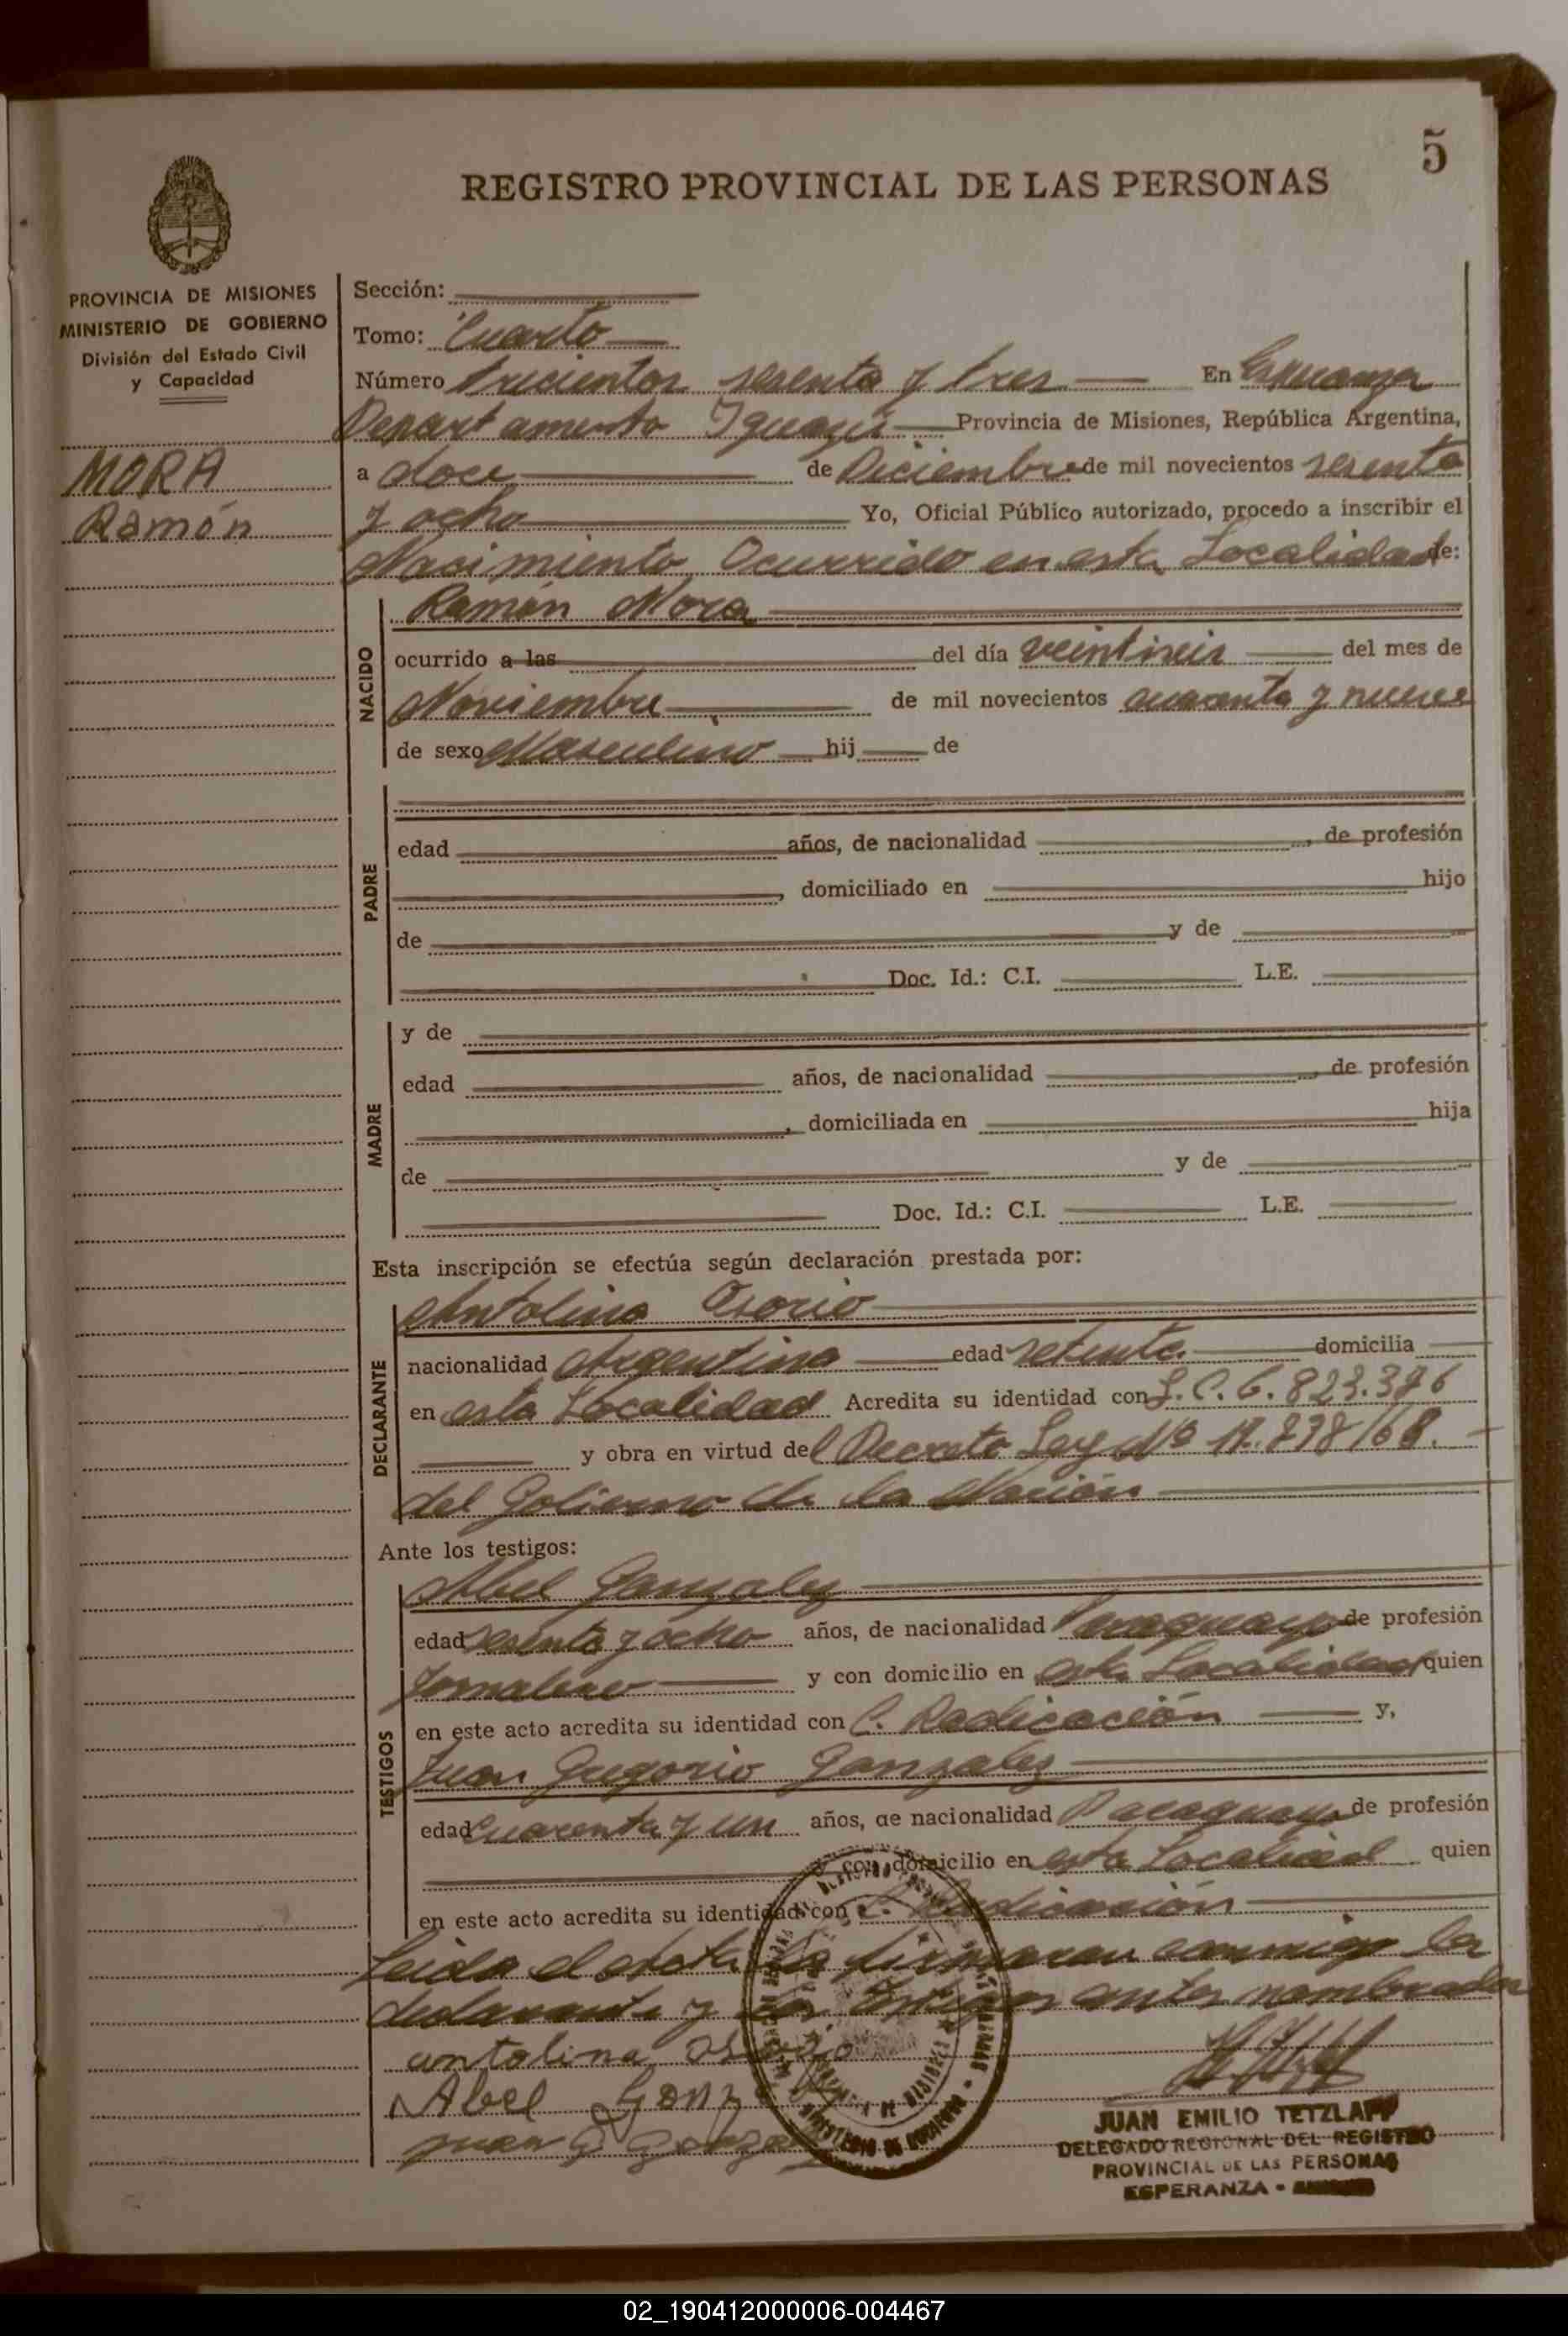 5
REGISTRO PROVINCIAL DE LAS PERSONAS
PROVINCIA DE MISIONES
MINISTERIO DE GOBIERNO
División del Estado Civil
y Capacidad
MORA
Ramón
Sección:
Tomo: Cuarto
Número trecientos sesenta y tres En Esperanza
Departamento Iguazú Provincia de Misiones, República Argentina,
a doce de Diciembre de mil novecientos sesenta
y ocho Yo, Oficial Público autorizado, procedo a inscribir el
Nacimiento Ocurrido en esta Localidad de:
NACIDO
Ramón Mora
ocurrido a las del día veintiseis del mes de
Noviembre de mil novecientos cuarenta y nueve
de sexo Masculino hij de
PADRE
edad años, de nacionalidad , de profesión
, domiciliado en hijo
de y de
Doc. Id.: C.I. L.E.
MADRE
y de
edad años, de nacionalidad de profesión
, domiciliada en hija
de y de
Doc. Id.: C.I. L.E.
Esta inscripción se efectúa según declaración prestada por:
DECLARANTE
Antolina Osorio
nacionalidad Argentina edad setenta domicilia
en esta Localidad Acredita su identidad con L.C. 6.823.376
y obra en virtud del Decreto Ley Nº 17.838/68.
del Gobierno de la Nación
Ante los testigos:
TESTIGOS
Abel Gonzalez
edad sesenta y ocho años, de nacionalidad Paraguayo de profesión
Jornalero y con domicilio en esta Localidad quien
en este acto acredita su identidad con C. Radicación y,
Juan Gregorio Gonzalez
edad Cuarenta y un años, de nacionalidad Paraguayo de profesión
y con domicilio en esta Localidad quien
en este acto acredita su identidad con C. Radicación
Leida el acta la firmaran conmigo la
declarante y los testigos antes nombrados
antolina Osorio
Abel Gonz
Juan G Gonza
JUAN EMILIO TETZLAFF
DELEGADO REGIONAL DEL REGISTRO
PROVINCIAL DE LAS PERSONAS
ESPERANZA -
02_190412000006-004467